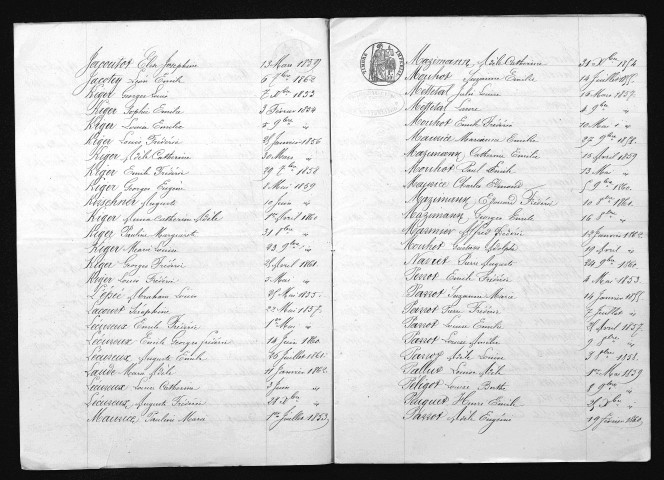 Jacoutot Elise Joséphine 13 Mars 1859
Jacotey Louis Emile 6 7bre 1862
Kiger Georges Louis 7 Xbre 1853
Kiger Sophie Emilie 3 Février 1854
Kiger Louisa Emilie 5 9bre "
Kiger Louise Frédéric 25 Janvier 1856
Kiger Adèle Catherine 30 Mars "
Kiger Emile Frédéric 29 7bre 1858
Kiger Georges Eugène 1 Mai 1859
Kirschner Auguste 10 Juin "
Kiger Anna Catherine Adèle 1er Avril 1860
Kiger Pauline Marguerite 31 8bre "
Kiger Marie Louise 23 9bre "
Kiger Georges Frédéric 2 Avril 1861
Kiger Louis Frédéric 5 Mai "
L'épée Abraham Louis 25 Mai 1855
Lacourt Séraphin 22 Mai 1857
Lécureux Emile Frédéric 1er Mai "
Lécureux Emile Georges Frédéric 14 Juin 1860
Lécureux Auguste Emile 26 Juillet 1861
Laude Marie Adèle 11 Janvier 1862
Lécureux Louise Catherine 3 Juin "
Lécureux Auguste Frédéric 28 Xbre "
Maurice Pauline Maria 1er Juillet 1853
TIMBRE IMPERIAL
Mazimann Adèle Catherine 31 Xbre 1854
Mouhot Suzanne Emilie 14 Juillet 1855
Mettetal Julie Louise 16 Mars 1857
Mettetal Laure 4 9bre "
Mouhot Emile Frédéric 10 Mai "
Maurice Marianne Emilie 27 9bre 1858
Mazimann Catherine Emilie 13 Avril 1859
Mouhot Paul Emile 13 Mai "
Maurice Charles Edmond 5 9bre 1860
Mazimann Edouard Frédéric 10 8bre 1861
Mazimann Georges Emile 16 8bre "
Marmier Alfred Frédéric 12 Janvier 1862
Mouhot Gustave Adolphe 19 Avril "
Nardet Pierre Auguste 24 9bre 1860
Perrot Emile Frédéric 4 Mai 1853
Parrot Suzanne Marie 14 Janvier 1855
Parrot Pierre Frédéric 7 Juillet "
Parrot Louise Emilie 2 Avril 1857
Parrot Louise Amélie 9 8bre "
Parrot Adèle Louise 3 8bre 1858
Pallus Louise Adèle 1er Mars 1859
Péligot Laure Berthe 1 9bre "
Pluquet Henri Emile 25 Xbre "
Parrot Adèle Eugénie 19 Février 1860